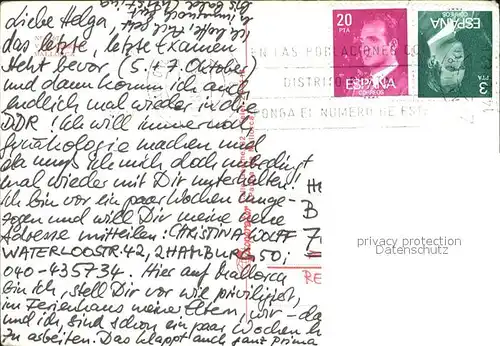 Liebe Helga,
das letzte, letzte Examen
steht bevor (5.+7. Oktober)
und dann komm ich auch
endlich mal wieder in die
DDR! Ich will immer noch
Gynäkologie machen und
da muß ich mich doch unbedingt
mal wieder mit Dir unterhalten!
Ich bin vor ein paar Wochen umge-
zogen und will Dir meine neue
Adresse mitteilen: CHRISTINA WOLFF
WATERLOOSTR. 42, 2 HAMBURG 50;
040-435734. Hier auf Mallorca
bin ich, stell Dir vor wie privilegiert,
im Ferienhaus meiner Eltern, wir - da
und ich, sind schon ein paar Wochen h
zu arbeiten. Das klappt auch ganz prima
20
PTA
ESPAÑA
CORREOS
ESPAÑA
CORREOS
3
PTA
EN LAS POBLACIONES CO
DISTRITO
PONGA EL NUMERO DE ESTE
H
B
7
RE
privacy protection
Datenschutz